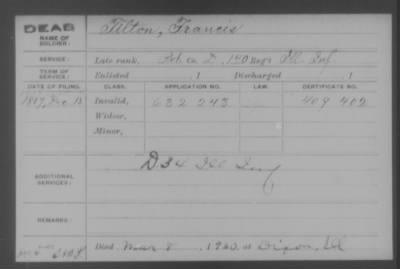 DEAB
NAME OF SOLDIER: Tilton, Francis
SERVICE: Late rank, Co. D, 140 Reg't Ill. Inf.
TERM OF SERVICE: Enlisted , 1 Discharged , 1
DATE OF FILING. CLASS. APPLICATION NO. LAW. CERTIFICATE NO.
Invalid, 632 243 409 402
Widow,
Minor,
D 34 Ill Inf
ADDITIONAL SERVICES:
REMARKS:
Died Mar , 19 at Dixon, Ill